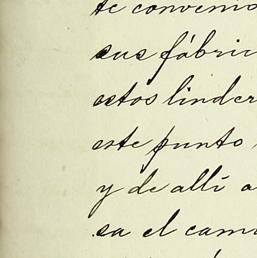 te convenio
sus fábric
estos linder
este punto
y de allí a
sa el cami